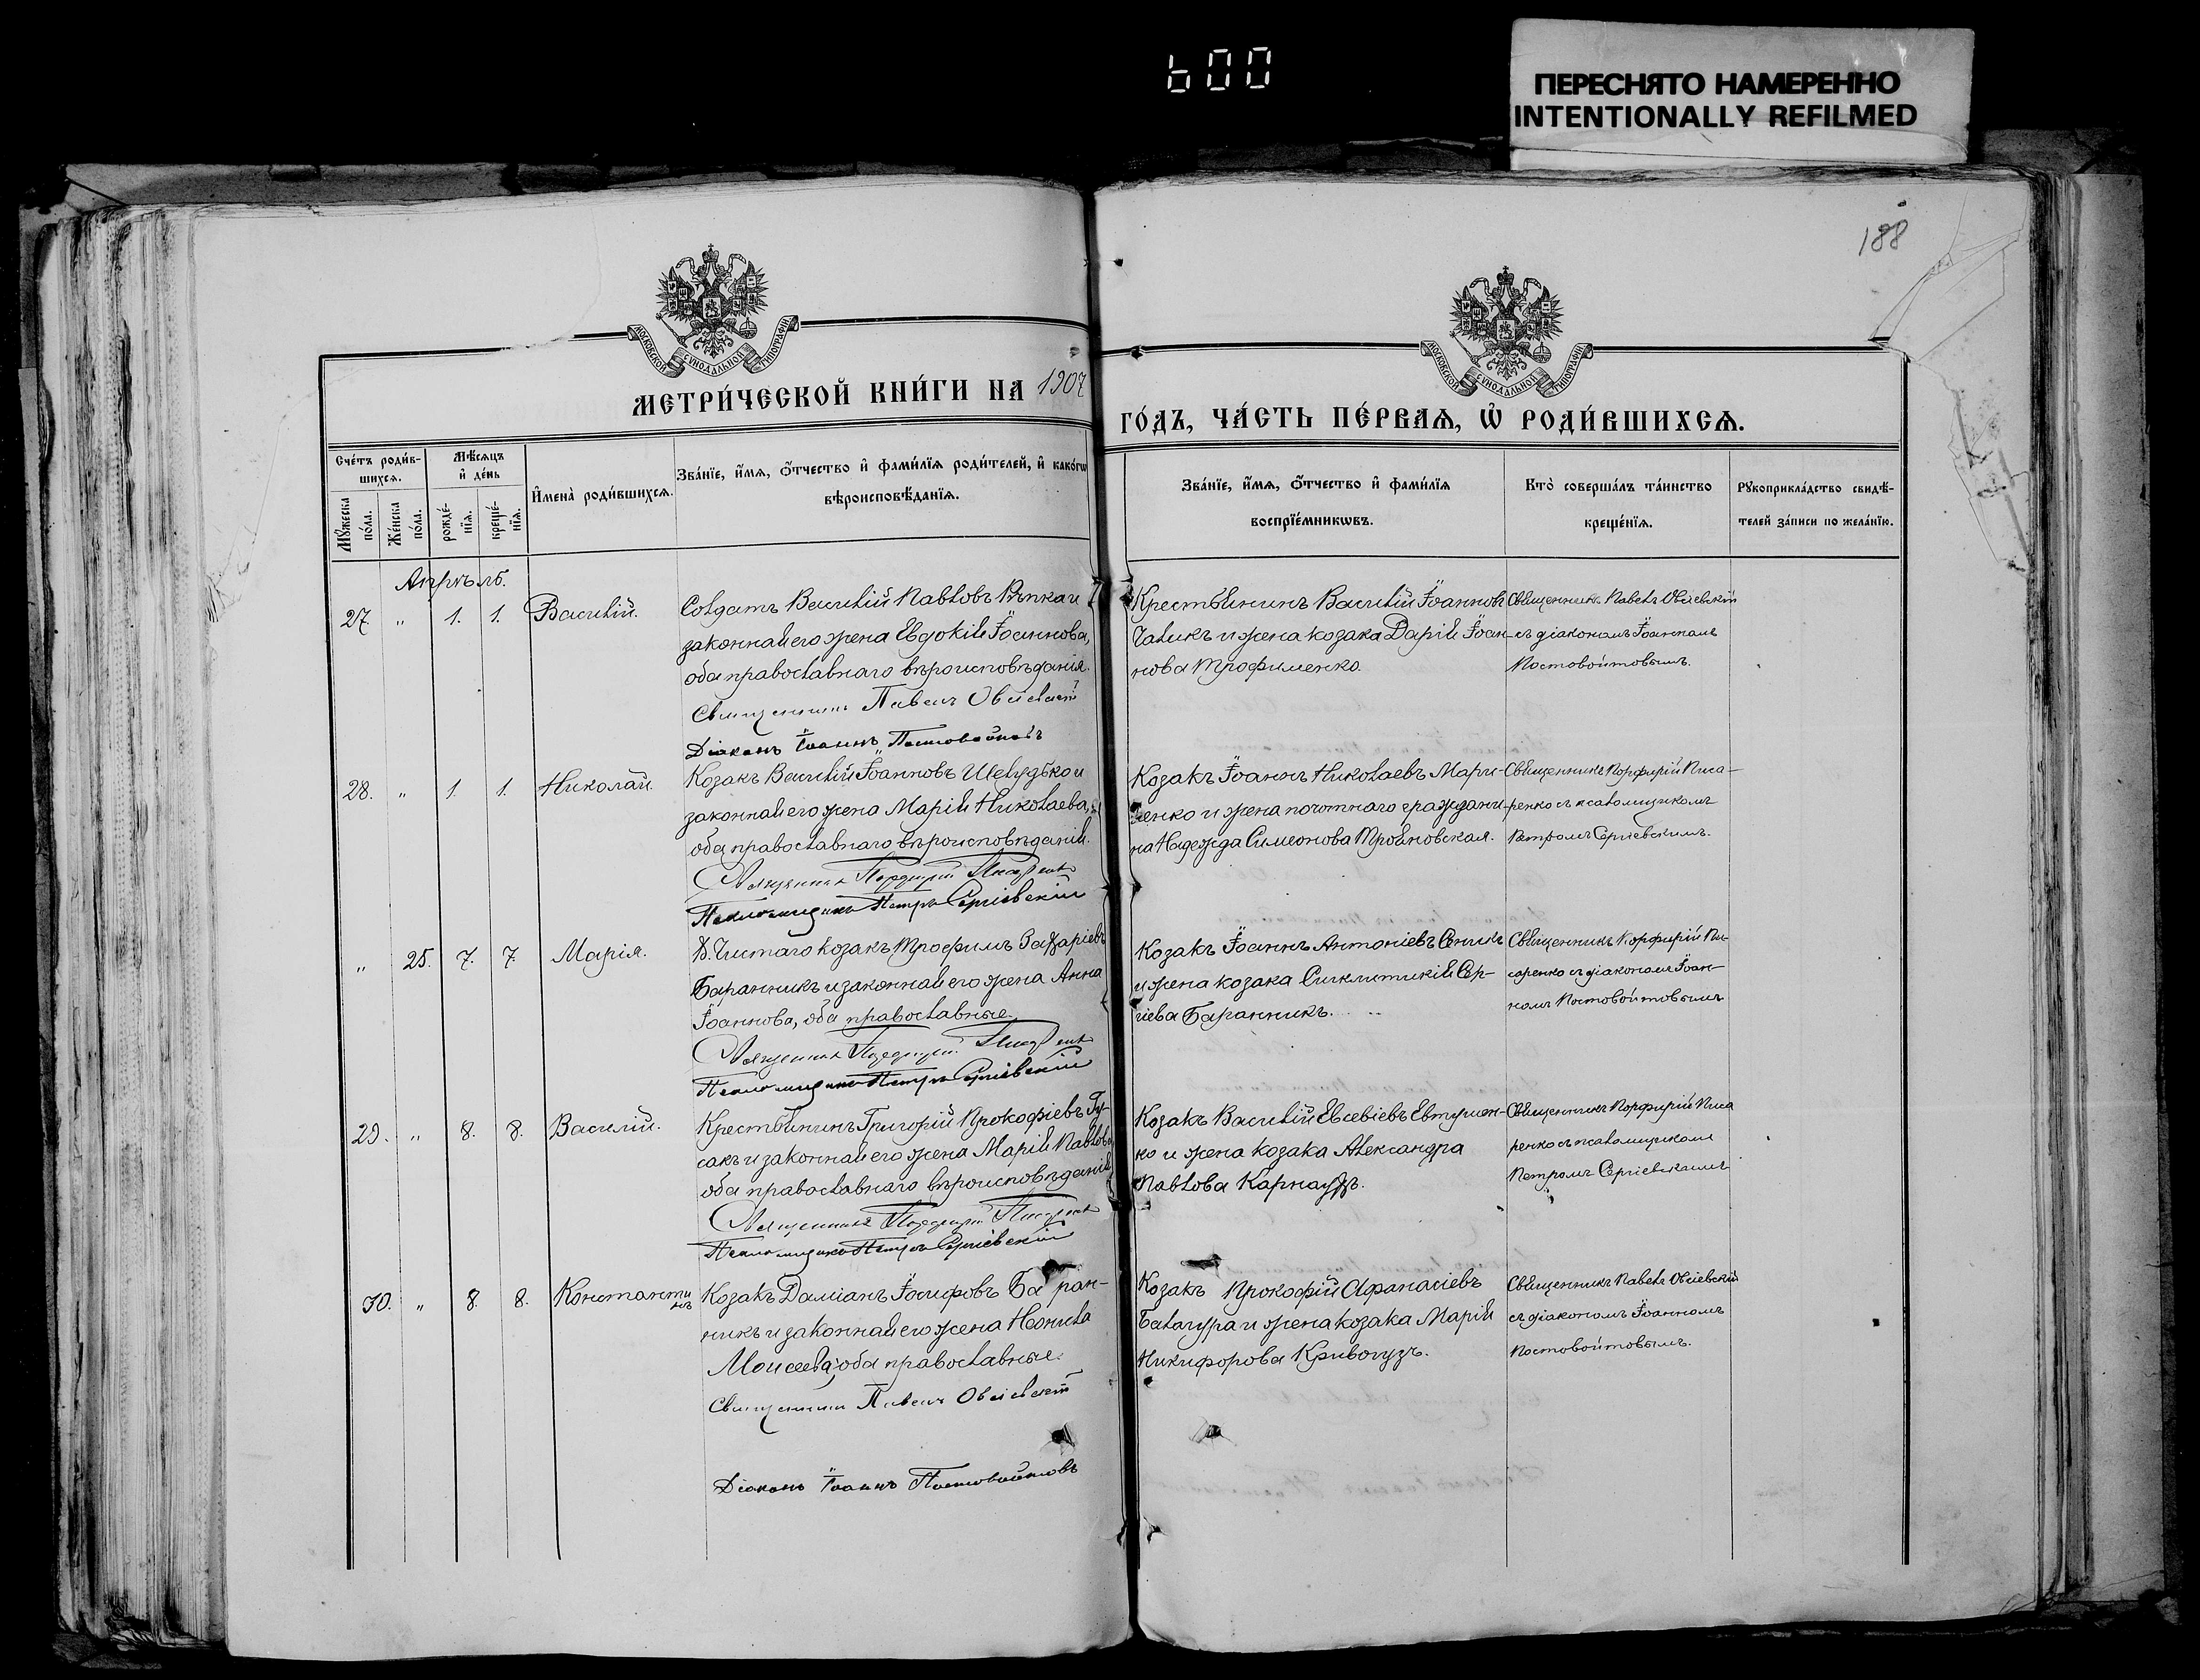 600
ПЕРЕСНЯТО НАМЕРЕННО
INTENTIONALLY REFILMED
188
МОСКОВСКОЙ СѴНОДАЛЬНОЙ ТИПОГРАФІИ
МОСКОВСКОЙ СѴНОДАЛЬНОЙ ТИПОГРАФІИ
МЕТРИ́ЧЕСКОЙ КНИ́ГИ НА 1907
ГО́ДЪ, ЧА́СТЬ ПЕ́РВАѦ, Ѿ РОДИ́ВШИХСѦ.
Сче́тъ роди́в-
шихсѧ.
Мꙋ́жеска по́ла.
Же́нска по́ла.
Мѣ́сѧцъ
и҆ де́нь
рожде́-
нїѧ.
креще́-
нїѧ.
И҆мена̀ роди́вшихсѧ.
Зва́нїе, и҆́мѧ, ѻ҆́тчество и҆ фами́лїѧ роди́телей, и҆ како́гѡ
вѣроисповѣ́данїѧ.
Зва́нїе, и҆́мѧ, ѻ҆́тчество и҆ фами́лїѧ
воспрїе́мникѡвъ.
Кто̀ соверша́лъ та́инство
креще́нїѧ.
Рꙋкоприкла́дство свидѣ́-
телей за́писи по жела́нїю.
Апрѣль.
27. " 1. 1. Василій.
Солдатъ Василій Павловъ Рѣпка и
законная его жена Евдокія Іоаннова,
оба православнаго вѣроисповѣданія.
Священникъ Павелъ Овсіевскій
Діаконъ Іоаннъ Постовойтовъ
Крестьянинъ Василій Іоанновъ
Чаликъ и жена козака Дарія Іоан-
нова Трофименко.
Священникъ Павелъ Овсіевскій
съ діакономъ Іоанномъ
Постовойтовымъ.
28. " 1. 1. Николай.
Козакъ Василій Іоанновъ Шелудько и
законная его жена Марія Николаева,
оба православнаго вѣроисповѣданія.
Священникъ Порфирій Писаренко
Псаломщикъ Петръ Сергіевскій
Козакъ Іоаннъ Николаевъ Мари-
ненко и жена почотнаго граждани-
на Надежда Симеонова Трояновская.
Священникъ Порфирій Писа-
ренко съ псаломщикомъ
Петромъ Сергіевскимъ.
" 25. 7. 7. Марія.
Д. Чистаго козакъ Трофимъ Захаріевъ
Баранникъ и законная его жена Анна
Іоаннова, оба православные.
Священникъ Порфирій Писаренко
Псаломщикъ Петръ Сергіевскій
Козакъ Іоаннъ Антоніевъ Сеникъ
и жена козака Синклитикія Сер-
гіева Баранникъ.
Священникъ Порфирій Пи-
саренко съ діакономъ Іоан-
номъ Постовойтовымъ
29. " 8. 8. Василій.
Крестьянинъ Григорій Прокофіевъ Гу-
сакъ и законная его жена Марія Павлова
оба православнаго вѣроисповѣданія
Священникъ Порфирій Писаренко
Псаломщикъ Петръ Сергіевскій
Козакъ Василій Евсевіевъ Евтушен-
ко и жена козака Александра
Павлова Карнаухъ.
Священникъ Порфирій Писа
ренко съ псаломщикомъ
Петромъ Сергіевскимъ
30. " 8. 8. Константинъ
Козакъ Даміанъ Іосифовъ Баран-
никъ и законная его жена Неонила
Моисеева, оба православные.
Священникъ Павелъ Овсіевскій
Діаконъ Іоаннъ Постовойтовъ
Козакъ Прокофій Афанасіевъ
Балагура и жена козака Марія
Никифорова Кривогузъ.
Священникъ Павелъ Овсіевскій
съ діакономъ Іоанномъ
Постовойтовымъ.